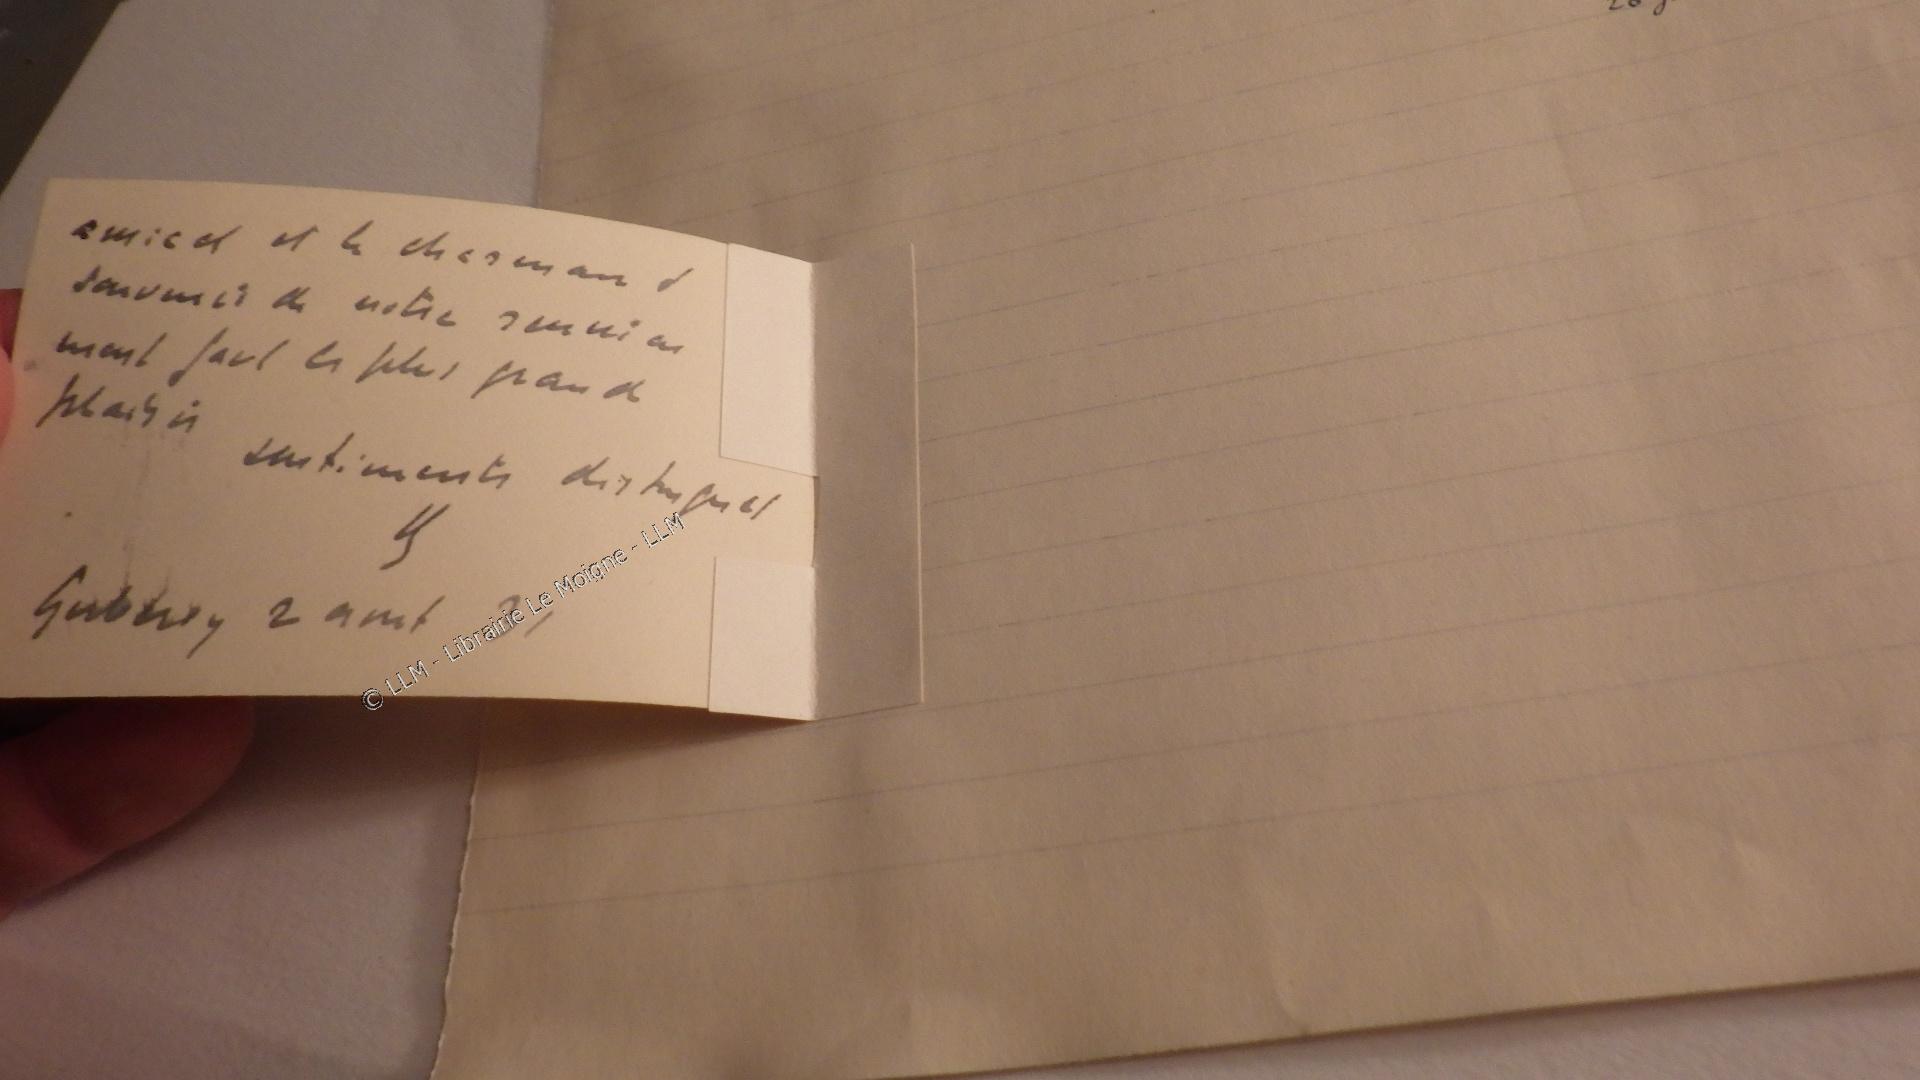 26
amical et le charmant
souvenir de notre
ment font le plus grand
plaisir
sentiments distingués
Gerberoy 2 aout
© LLM - Librairie Le Moigne - LLM